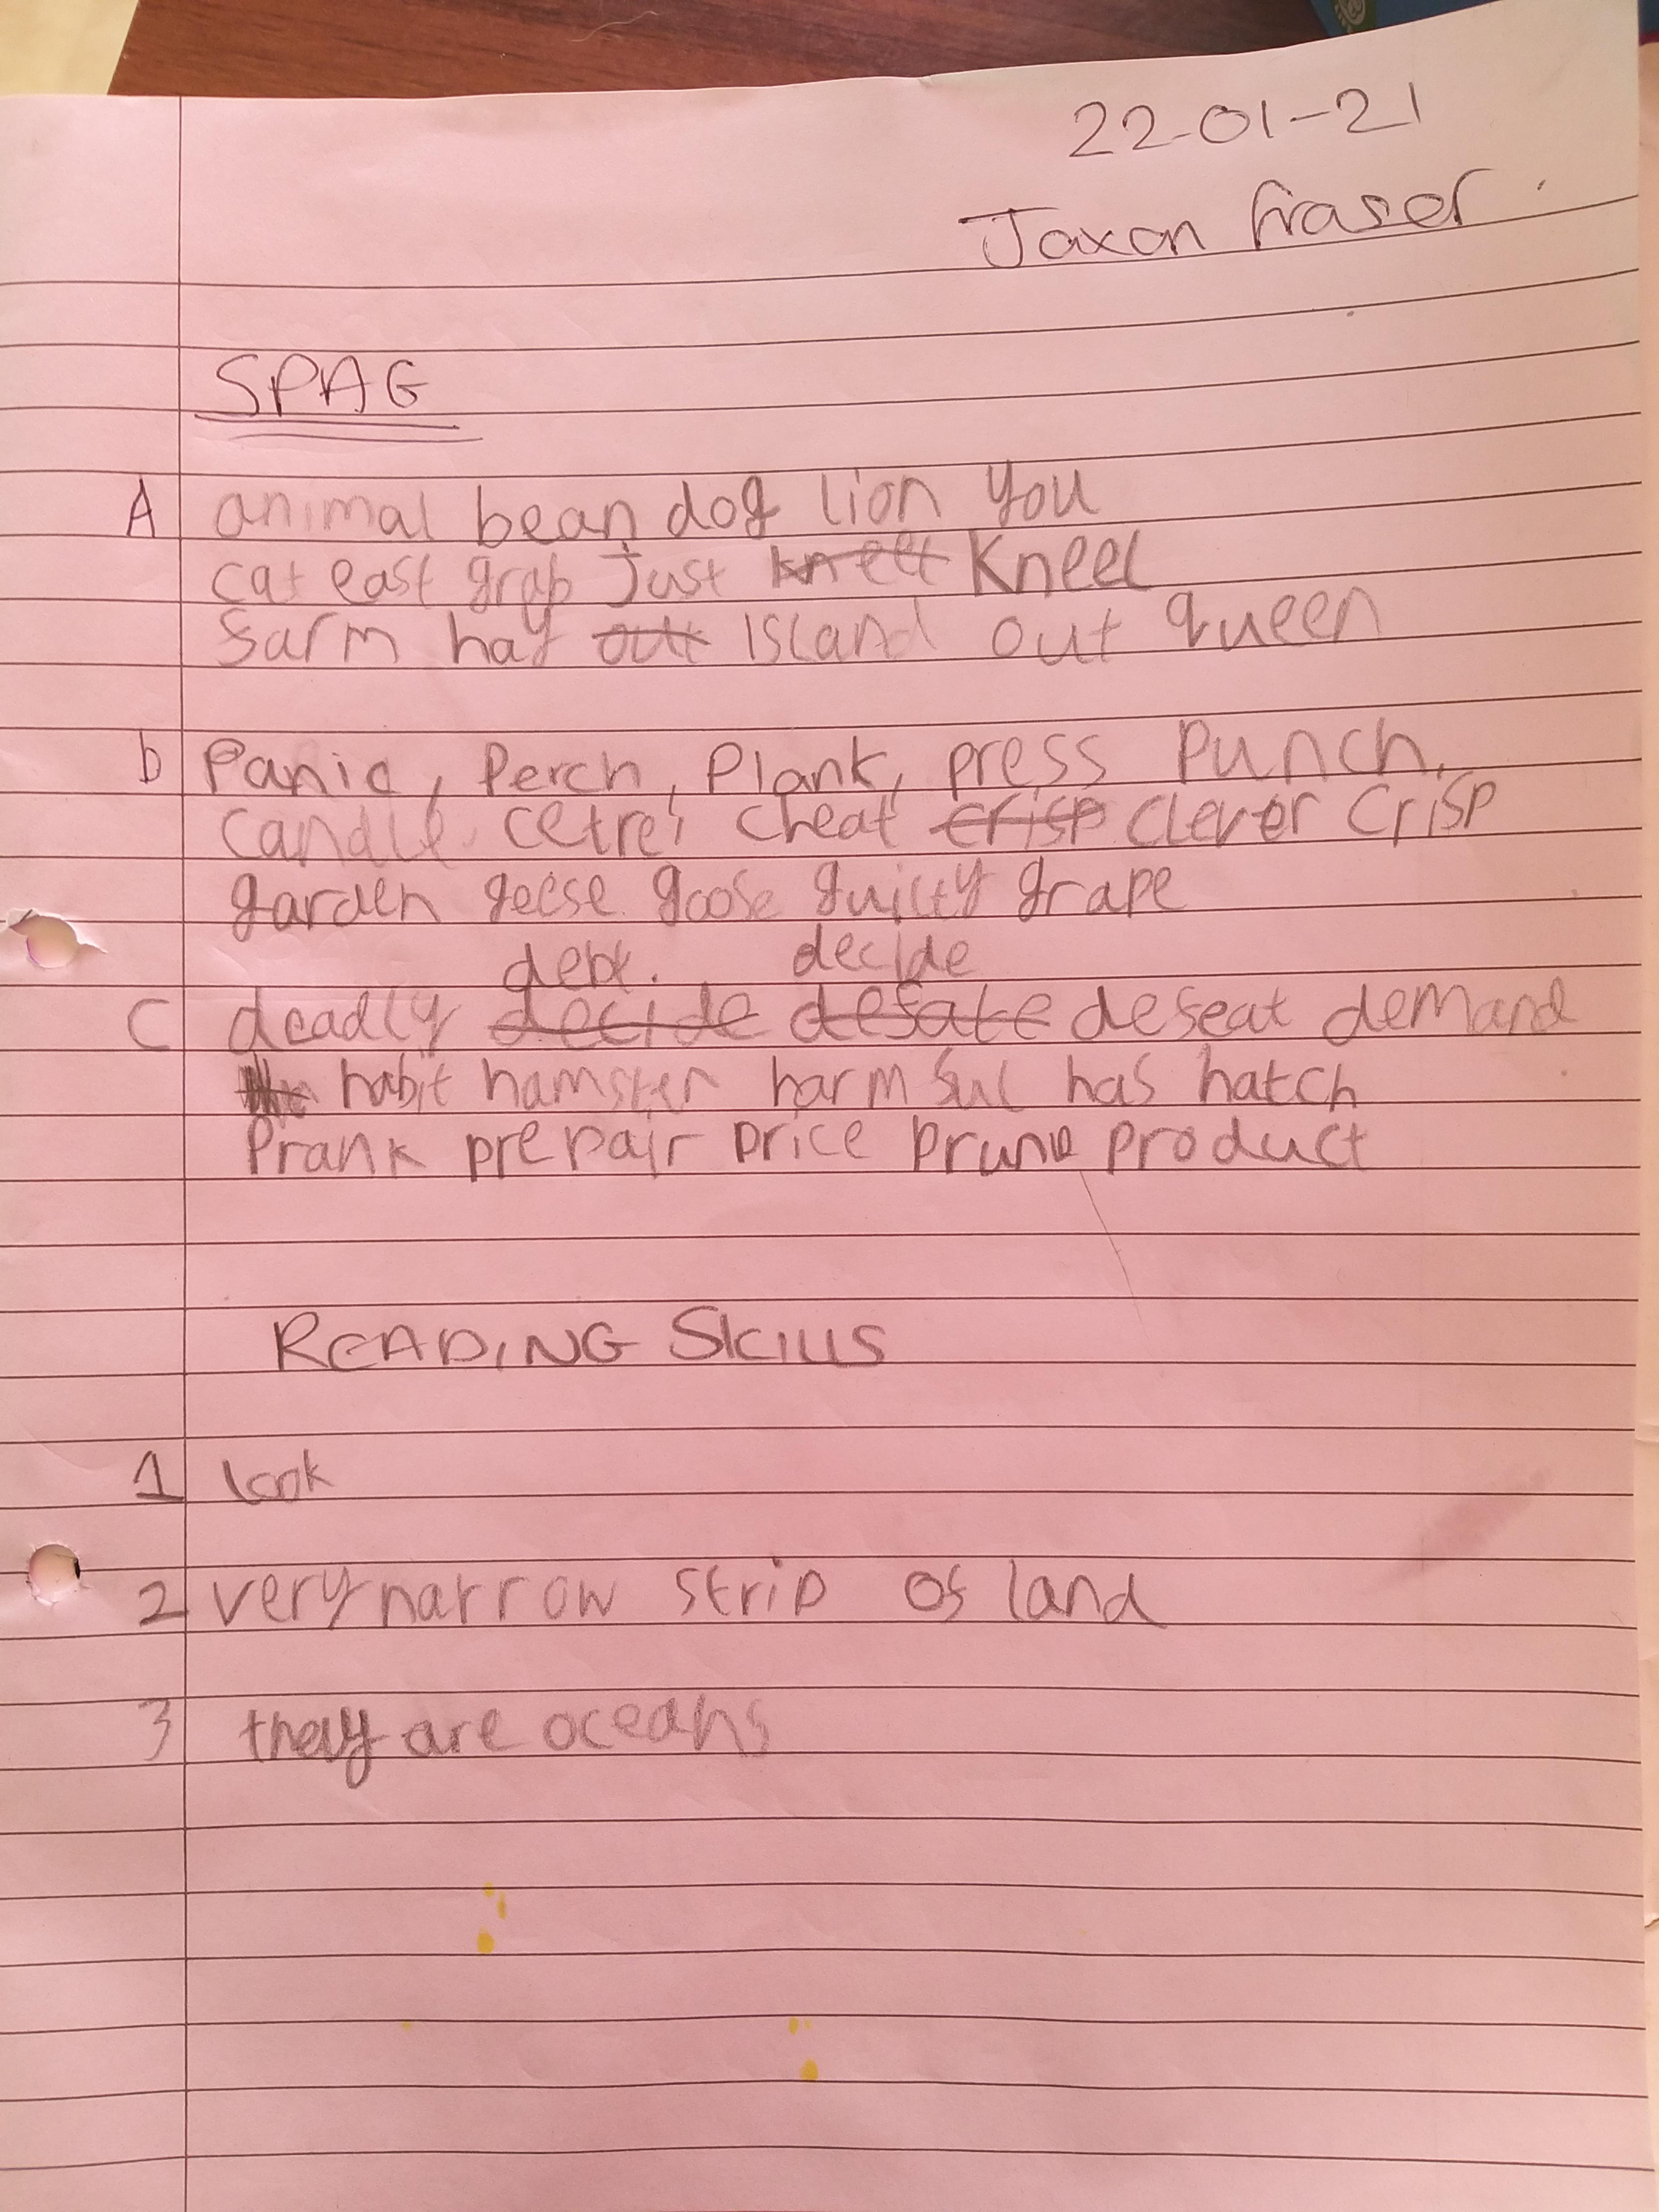 22-01-21
Jaxon Fraser.
SPAG
A animal bean dog lion you
cat east grab Just kneel Kneel
farm hay out Island out queen
b Panic, Perch, Plank, press Punch,
candle cetre, cheat crisp clever crisp
garden geese goose guilty grape
debt. decide
C deadly decide defate defeat demand
habit hamster harmful has hatch
Prank prepair price prune product
READING SKILLS
1 look
2 very narrow strip of land
3 they are oceans